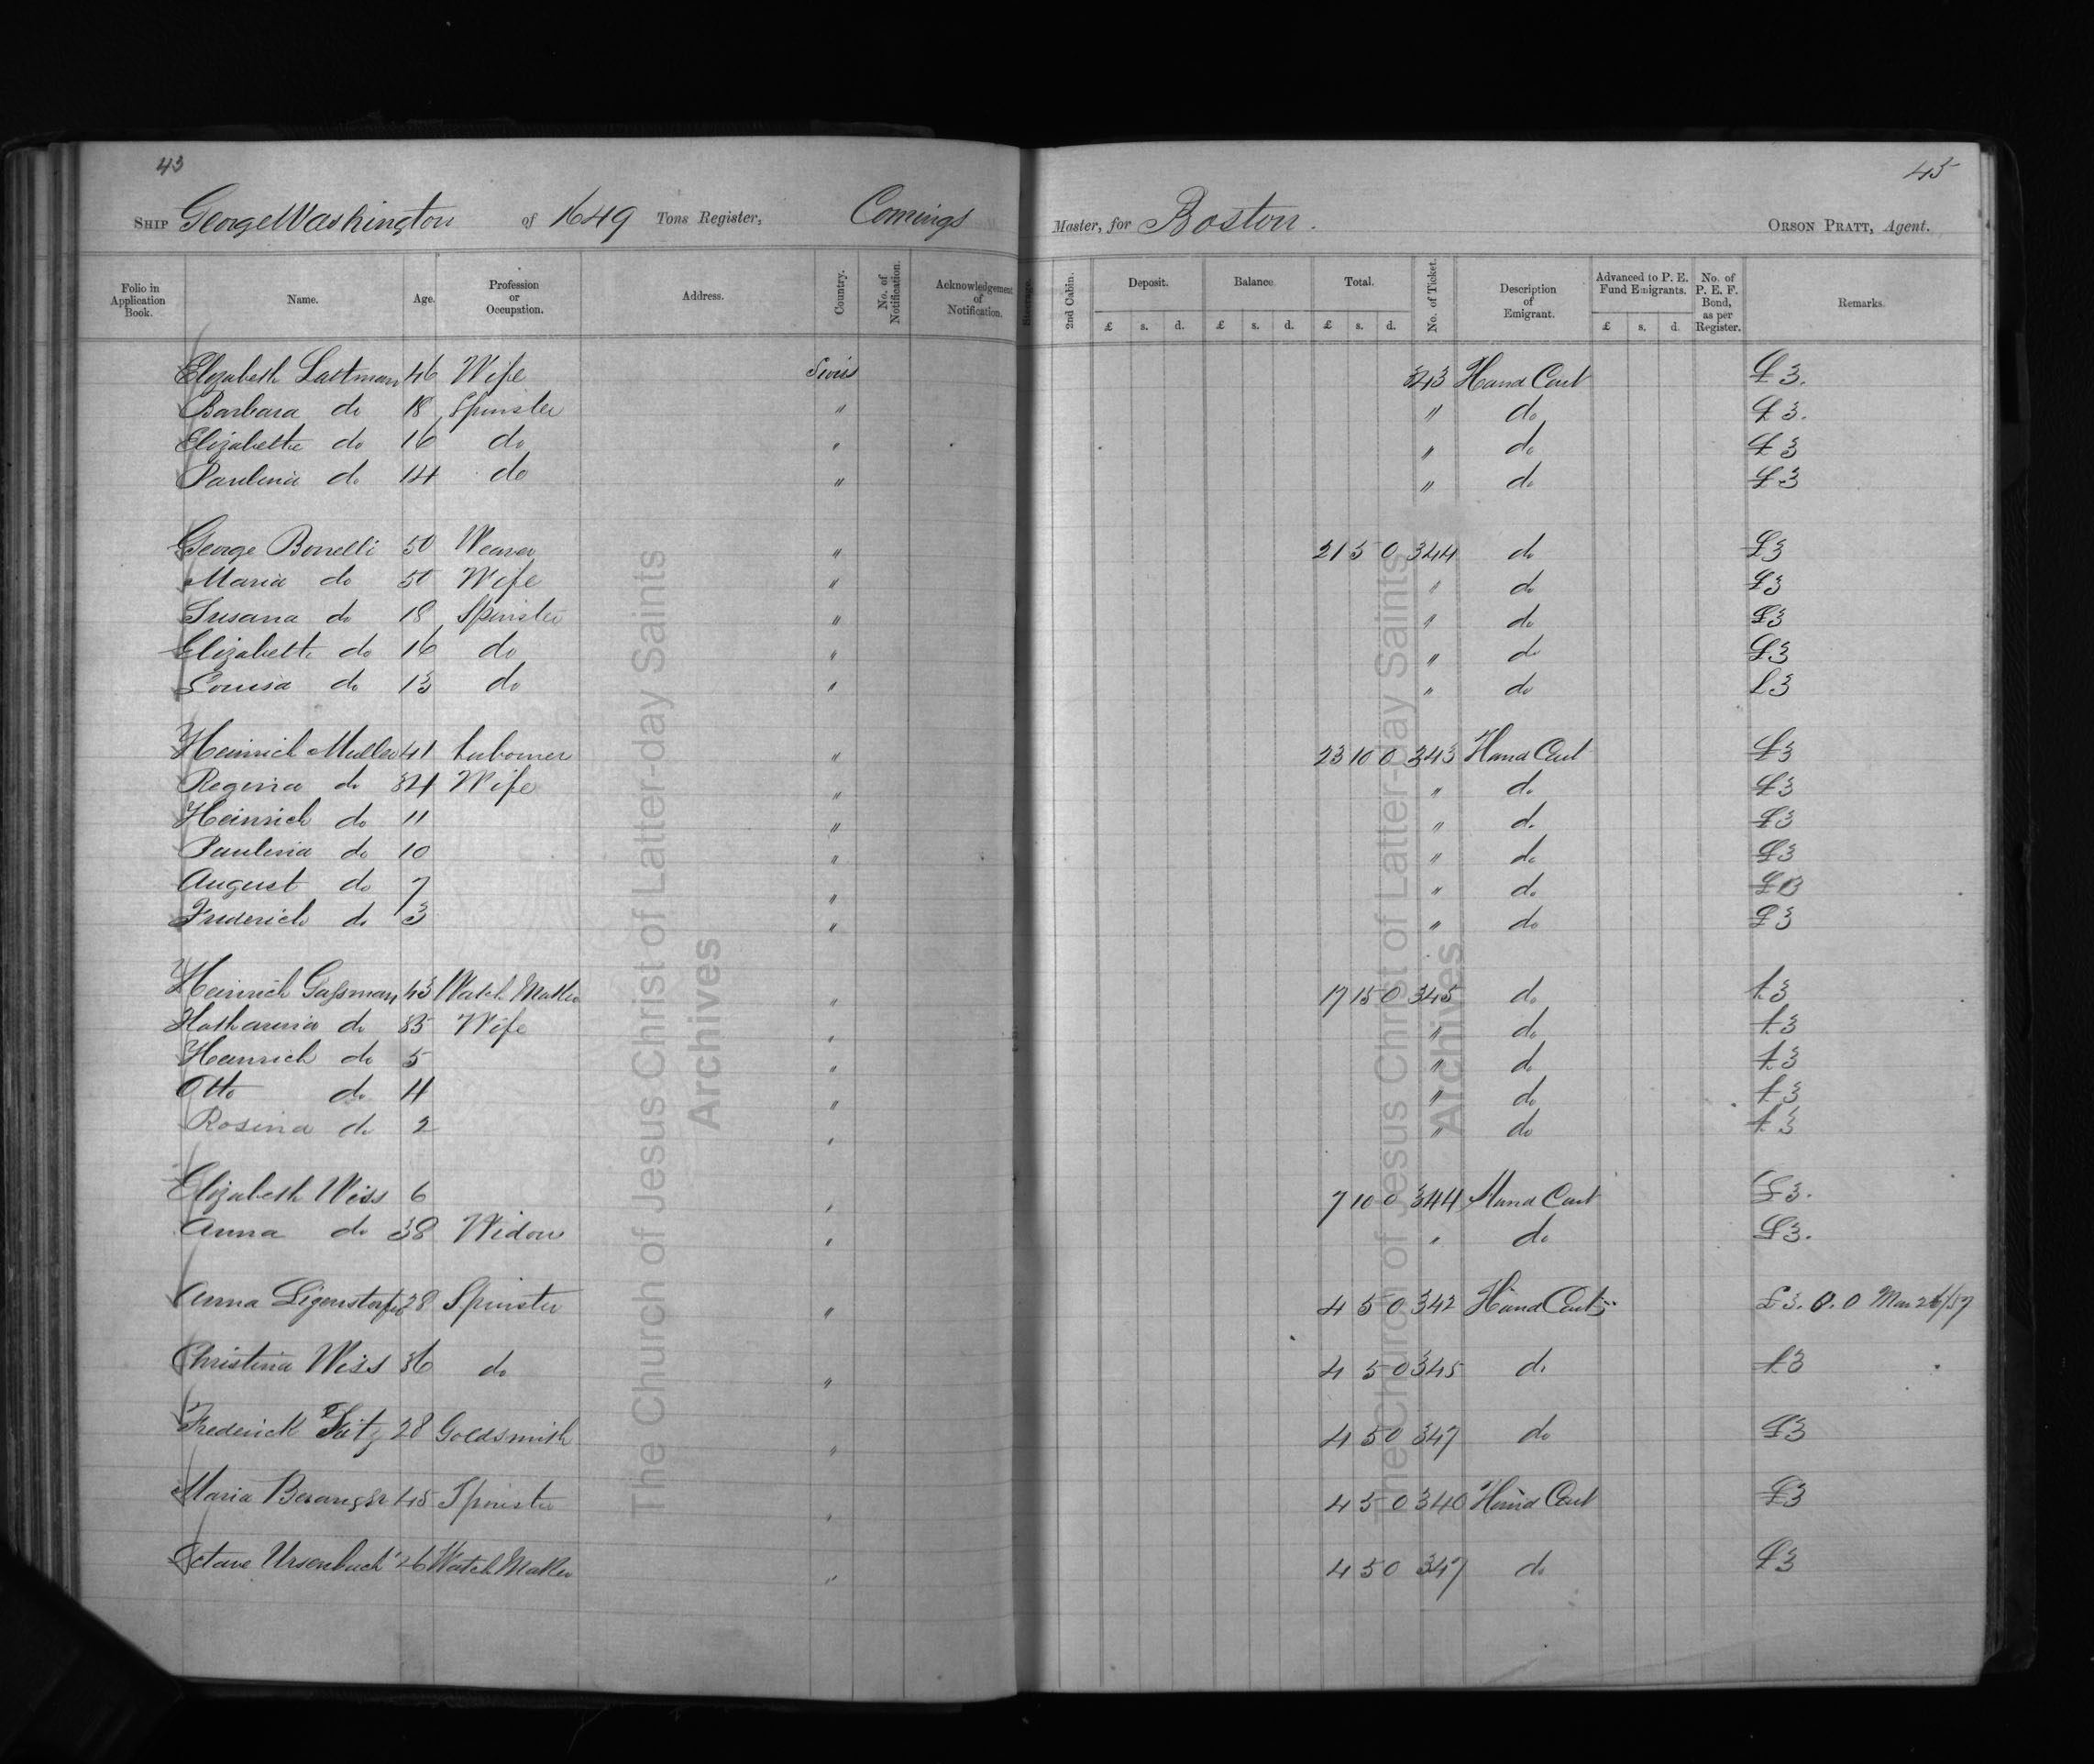 43
45
SHIP George Washington of 1649 Tons Register, Comings Master, for Boston. ORSON PRATT, Agent.
Folio in Application Book. Name. Age. Profession or Occupation. Address. Country. No. of Notification. Acknowledgement of Notification. Steerage. 2nd Cabin. Deposit. Balance. Total. No. of Ticket. Description of Emigrant. Advanced to P. E. Fund Emigrants. No. of P. E. F. Bond, as per Register. Remarks.
£ s. d. £ s. d. £ s. d. £ s. d.
Elizabeth Lattman 46 Wife Swiss 343 Hand Cart £3.
Barbara do 18 Spinster " " do £3.
Elizabethe do 16 do " " do £3
Paulina do 14 do " " do £3
George Bonelli 50 Weaver " 21 5 0 344 do £3
Maria do 50 Wife " " do £3
Susana do 18 Spinster " " do £3
Elizabeth do 16 do " " do £3
Louisa do 13 do " " do £3
Heinrich Muller 41 Labourer " 23 10 0 343 Hand Cart £3
Regina do 34 Wife " " do £3
Heinrich do 11 " " do £3
Paulina do 10 " " do £3
August do 7 " " do £3
Frederich do 3 " " do £3
Heinrich Gassman 43 Watch Maker " 17 15 0 345 do £3
Katharina do 35 Wife " " do £3
Heinrich do 5 " " do £3
Otto do 4 " " do £3
Rosina do 2 " " do £3
Elizabeth Weiss 6 " 7 10 0 344 Hand Cart £3.
Anna do 38 Widow " " do £3.
Anna 28 Spinster " 4 5 0 342 Hand Cart £3. 0. 0 Mar 26/57
Christina Weiss 36 do " 4 5 0 345 do £3
Frederick 28 Goldsmith " 4 5 0 347 do £3
Maria Beranger 45 Spinster " 4 5 0 340 Hand Cart £3
Octave Ursenbach 26 Watch Maker " 4 5 0 347 do £3
The Church of Jesus Christ of Latter-day Saints
Archives
The Church of Jesus Christ of Latter-day Saints
Archives